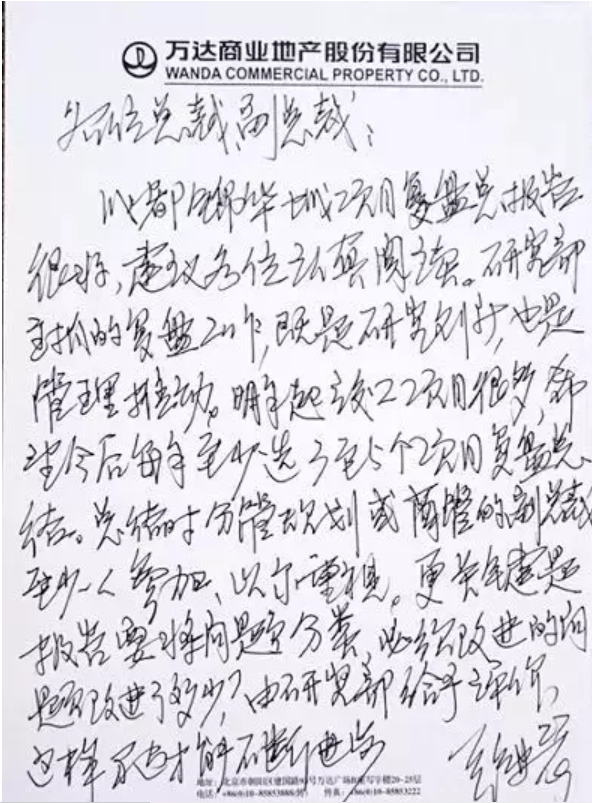 万达商业地产股份有限公司
WANDA COMMERCIAL PROPERTY CO., LTD.
各位总裁、副总裁：
成都锦华城项目复盘总报告
很好，建议各位认真阅读。研究部
主抓的复盘工作，既是研究创新，也是
管理推动。明年起竣工项目很多，希
望今后每年至少选3至5个项目复盘总
结。总结时分管规划或商管的副总裁
至少一人参加，以示重视。更关键是
报告要将问题分类，必须改进的问
题改进了多少？由研究部给予评价，
这样万达才能不断进步
地址：北京市朝阳区建国路93号万达广场B座写字楼20-25层
电话：+86(0)10-85853888(转) 传真：+86(0)10-85853222